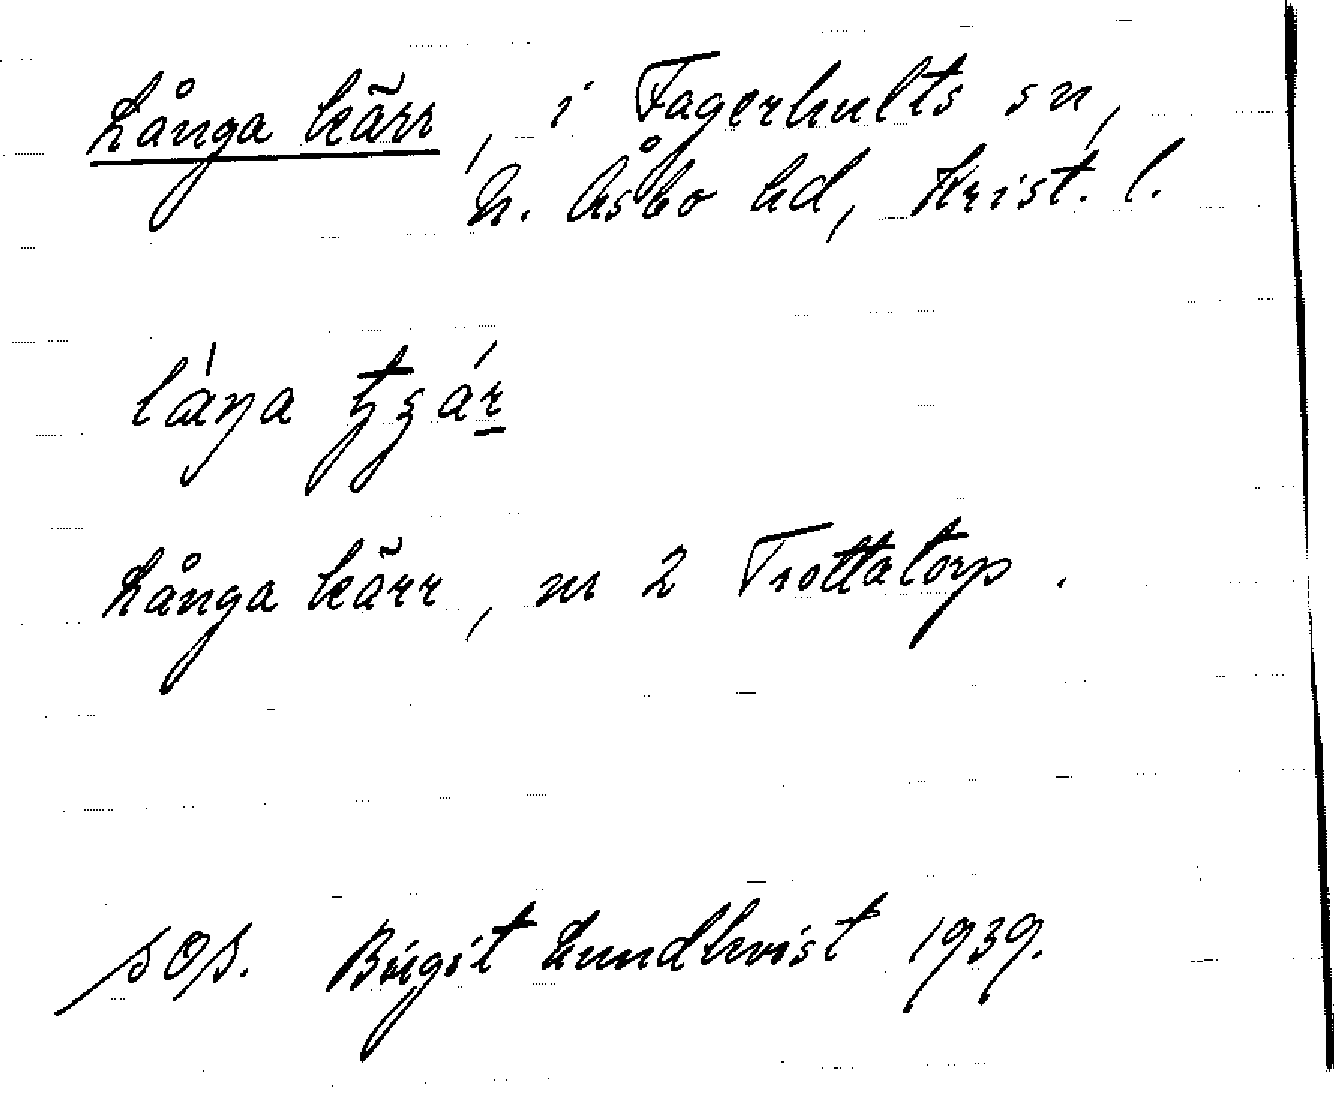 Långa kärr, i Fagerhults sn,
N. Åsbo hd, Krist. l.
Långa kärr, nr 2 Trottatorp.
SOS. Birgit Lundkvist 1939.